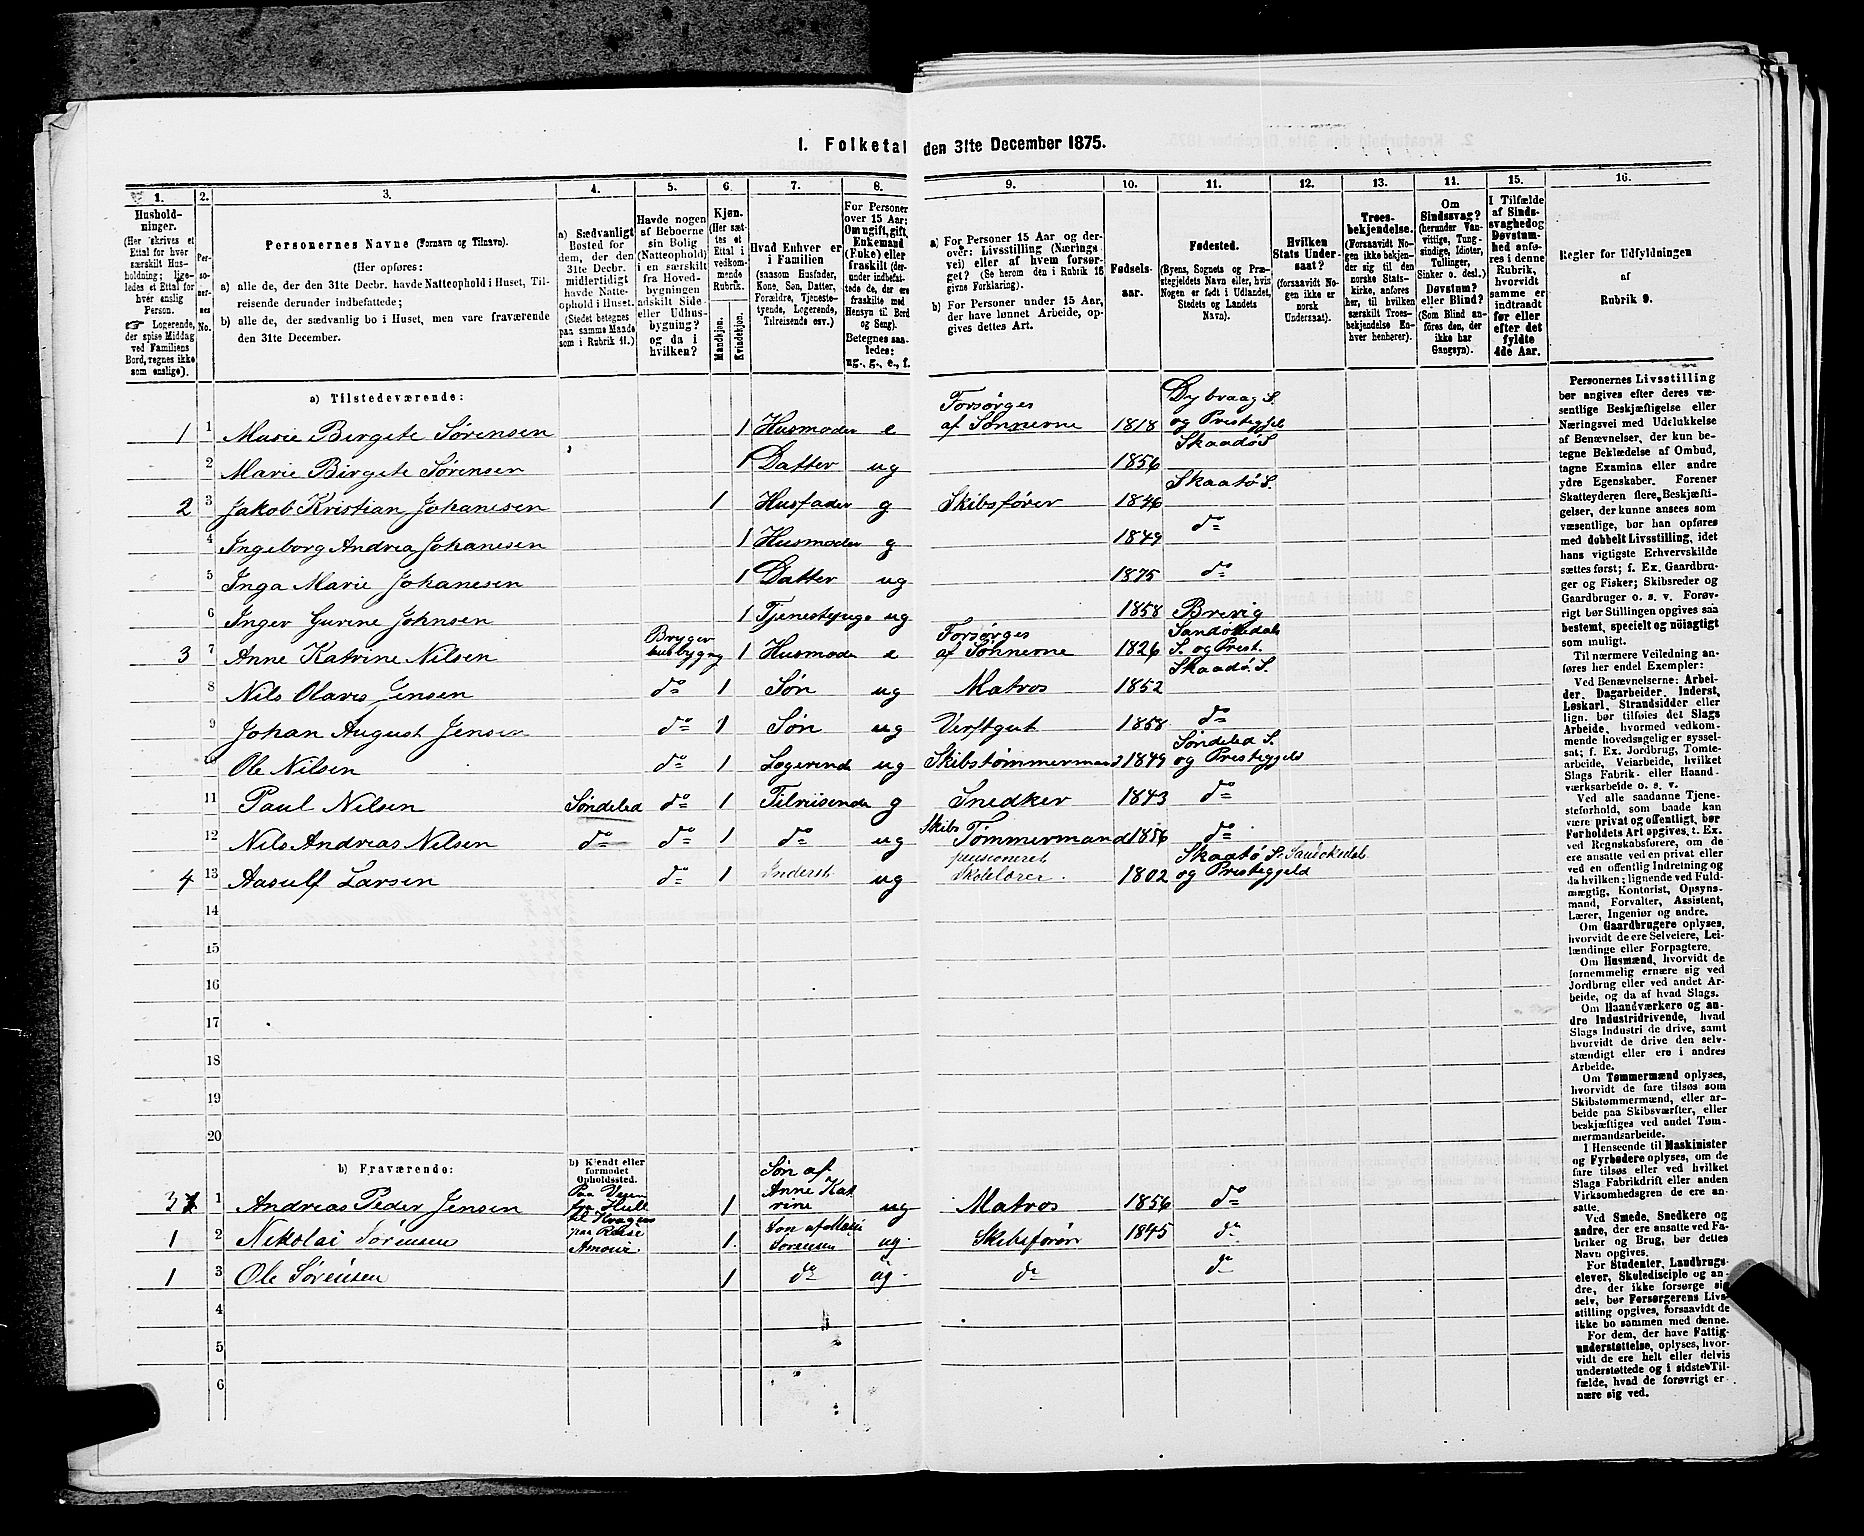 1. Folketal den 31te December 1875.
1. 2. 3. 4. 5. 6. 7. 8. 9. 10. 11. 12. 13. 14. 15. 16.
Hushold-
ninger.
(Her skrives et
Ettal for hver
særskilt Hus-
holdning; lige-
ledes et Ettal for
hver enslig
Person.
☞ Logerende,
der spise Middag
ved Familiens
Bord, regnes ikke
som enslige).
Per-
so-
ner-
nes
No.
Personernes Navne (Fornavn og Tilnavn).
(Her opføres:
a) alle de, der den 31te Decbr. havde Natteophold i Huset, Til-
reisende derunder indbefattede;
b) alle de, der sædvanlig bo i Huset, men vare fraværende
den 31te December.
a) Sædvanligt
Bosted for
dem, der den
31te Decbr.
midlertidigt
havde Natte-
ophold i Huset.
(Stedet betegnes
paa samme Maade
som i Rubrik 11.)
Havde nogen
af Beboerne
sin Bolig
(Natteophold)
i en særskilt
fra Hoved-
bygningen
adskilt Side-
eller Udhus-
bygning?
og da i
hvilken?
Kjøn.
(Her sæt-
tes et
Ettal i
vedkom-
mende
Rubrik.
Mandkjøn.
Kvindekjøn.
Hvad Enhver er
i Familien
(saasom Husfader,
Kone, Søn, Datter,
Forældre, Tjeneste-
tyende, Logerende,
Tilreisende osv.)
For Personer
over 15 Aar:
Om ugift, gift,
Enkemand
(Enke) eller
fraskilt (der-
under indbefat-
tede de, der ere
fraskilte med
Hensyn til Bord
og Seng).
Betegnes saa-
ledes:
ug., g., e., f.
a) For Personer 15 Aar og der-
over: Livsstilling (Nærings-
vei) eller af hvem forsør-
get? (Se herom den i Rubrik 16
givne Forklaring).
b) For Personer under 15 Aar,
der have lønnet Arbeide, op-
gives dettes Art.
Fødsels-
aar.
Fødested.
(Byens, Sognets og Præ-
stegjeldets Navn eller, hvis
Nogen er født i Udlandet,
Stedets og Landets
Navn).
Hvilken
Stats Under-
saat?
(forsaavidt No-
gen ikke er
norsk
Undersaat).
Troes-
bekjendelse.
(Forsaavidt No-
gen ikke bekjen-
der sig til den
norske Stats-
kirke, anføres
her, til hvilken
særskilt Troes-
bekjendelse En-
hver henhører).
Om
Sindssvag?
(herunder Van-
vittige, Tung-
sindige, Idioter,
Tullinger,
Sinker o. desl.)
Døvstum?
eller Blind?
(Som Blind an-
føres den, der
ikke har
Gangsyn).
I Tilfælde
af Sinds-
svaghed og
Døvstum-
hed anfø-
res i denne
Rubrik,
hvorvidt
samme er
indtraadt
før eller
efter det
fyldte
4de Aar.
Regler for Udfyldningen
af
Rubrik 9.
a) Tilstedeværende:
1 1 Marie Birgete Sørensen 1 Husmoder e Forsørges af Sønnerne 1818 Dybvaag S. og Prestegjel
2 Marie Birgete Sørensen 1 Datter ug 1856 Skaadø S
2 3 Jakob Kristian Johanesen 1 Husfader g Skibsfører 1846 Skaatø S.
4 Ingeborg Andrea Johanesen 1 Husmoder g 1849 do
5 Inga Marie Johanesen 1 Datter ug 1875 do
6 Inger Gurine Johnsen 1 Tjenestepige ug 1858 Brevig
3 7 Anne Katrine Nilsen Bryger husbygng 1 Husmode e Forsørges af Sønnerne 1826 Sandøkedals S. og Prest.
8 Nils Olaves Jensen do 1 Søn ug Matros 1852 Skaadø. S.
9 Johan August Jensen do 1 Søn ug Verftgut 1858 do
Ole Nilsen do 1 Logerende ug Skibstømmermand 1849 Søndeled S. og Prestegjeld
11 Paul Nilsen Søndeled do 1 Tilreisende g Snedker 1843 do
12 Nils Andreas Nilsen do do 1 do ug Skibs Tømmermand 1856 do
4 13 Aasulf Larsen do 1 Inderst ug pensioneret Skolelærer. 1802 Skaatø S. Sandøkedal og Prestegjeld
14
15
16
17
18
19
20
b) Fraværende:
b) Kjendt eller
formodet
Opholdssted.
3 1 Andreas Peder Jensen Paa Veien fra Hull til Kragerø 1 Søn af Anne Katrine ug Matros 1856 do
1 2 Nikolai Sørensen paa Reise 1. Søn af Marie Sørensen ug. Skibsfører 1845 do
1 3 Ole Sørensen 1 do ug. do do
4
5
6
Personernes Livsstilling
bør angives efter deres væ-
sentlige Beskjæftigelse eller
Næringsvei med Udelukkelse
af Benævnelser, der kun be-
tegne Beklædelse af Ombud,
tagne Examina eller andre
ydre Egenskaber. Forener
Skatteyderen flere Beskjæfti-
gelser, der kunne ansees som
væsentlige, bør han opføres
med dobbelt Livsstilling, idet
hans vigtigste Erhvervskilde
sættes først; f. Ex. Gaardbru-
ger og Fisker; Skibsreder og
Gaardbruger o. s. v. Forøv-
rigt bør Stillingen opgives saa
bestemt, specielt og nöiagtigt
som muligt.
Til nærmere Veiledning an-
føres her endel Exempler:
Ved Benævnelserne: Arbei-
der, Dagarbeider, Inderst,
Løskarl, Strandsidder eller
lign. bør tilføies det Slags
Arbeide, hvormed vedkom-
mende hovedsagelig er syssel-
sat; f. Ex. Jordbrug, Tomte-
arbeide, Veiarbeide, hvilket
Slags Fabrik- eller Haand-
værksarbeide o. s. v.
Ved alle saadanne Tjene-
steforhold, som baade kan
være privat og offentligt, bør
Forholdets Art opgives, t. Ex.
ved Regnskabsførere, om de
ere ansatte ved en privat eller
ved en offentlig Indretning og
da hvilken; lignende ved Fuld-
mægtig, Kontorist, Opsyns-
mand, Forvalter, Assistent,
Lærer, Ingeniør og andre.
Om Gaardbrugere oplyses,
hvorvidt de ere Selveiere, Lei-
lændinge eller Forpagtere.
Om Husmænd, hvorvidt de
fornemmelig ernære sig ved
Jordbrug eller ved andet Ar-
beide, og da af hvad Slags.
Om Haandværkere og an-
dre Industridrivende, hvad
Slags Industri de drive, samt
hvorvidt de drive den selv-
stændigt eller ere i andres
Arbeide.
Om Tømmermænd oplyses,
hvorvidt de fare tilsøs som
Skibstømmermænd, eller ar-
beide paa Skibsværfter, eller
beskjæftiges ved andet Tøm-
mermandsarbeide.
I Henseende til Maskinister
og Fyrbødere oplyses, om de
fare tilsøs eller ved hvilket
Slags Fabrikdrift eller anden
Virksomhedsgren de ere an-
satte.
Ved Smede, Snedkere og
andre, der ere ansatte ved Fa-
briker og Brug, bør dettes
Navn opgives.
For Studenter, Landbrugs-
elever, Skoledisciple og an-
dre, der ikke forsørge sig
selv, bør Forsørgerens Livs-
stilling opgives, forsaavidt de
ikke bo sammen med denne.
For dem, der have Fattig-
understøttelse, oplyses, hvor-
vidt de ere helt eller delvis
understøttede og i sidste Til-
fælde, hvad de forøvrigt er-
nære sig ved.